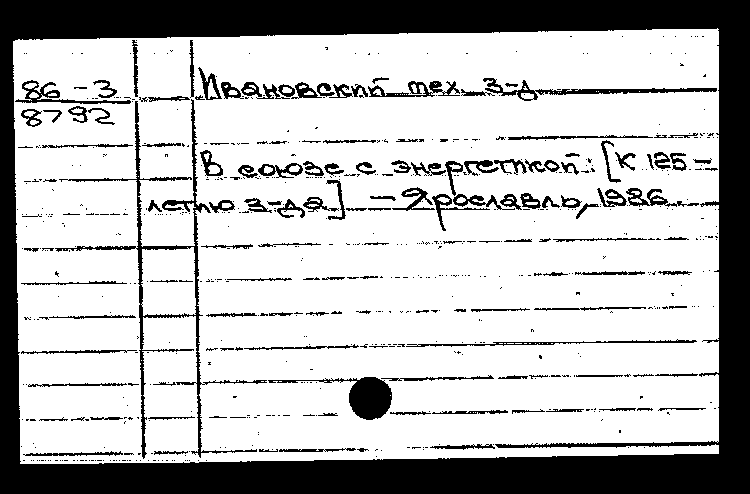 86-3
8792
Ивановский тех. з-д
В союзе с энергетикой: [К 125-
летию з-да] — Ярославль, 1986.